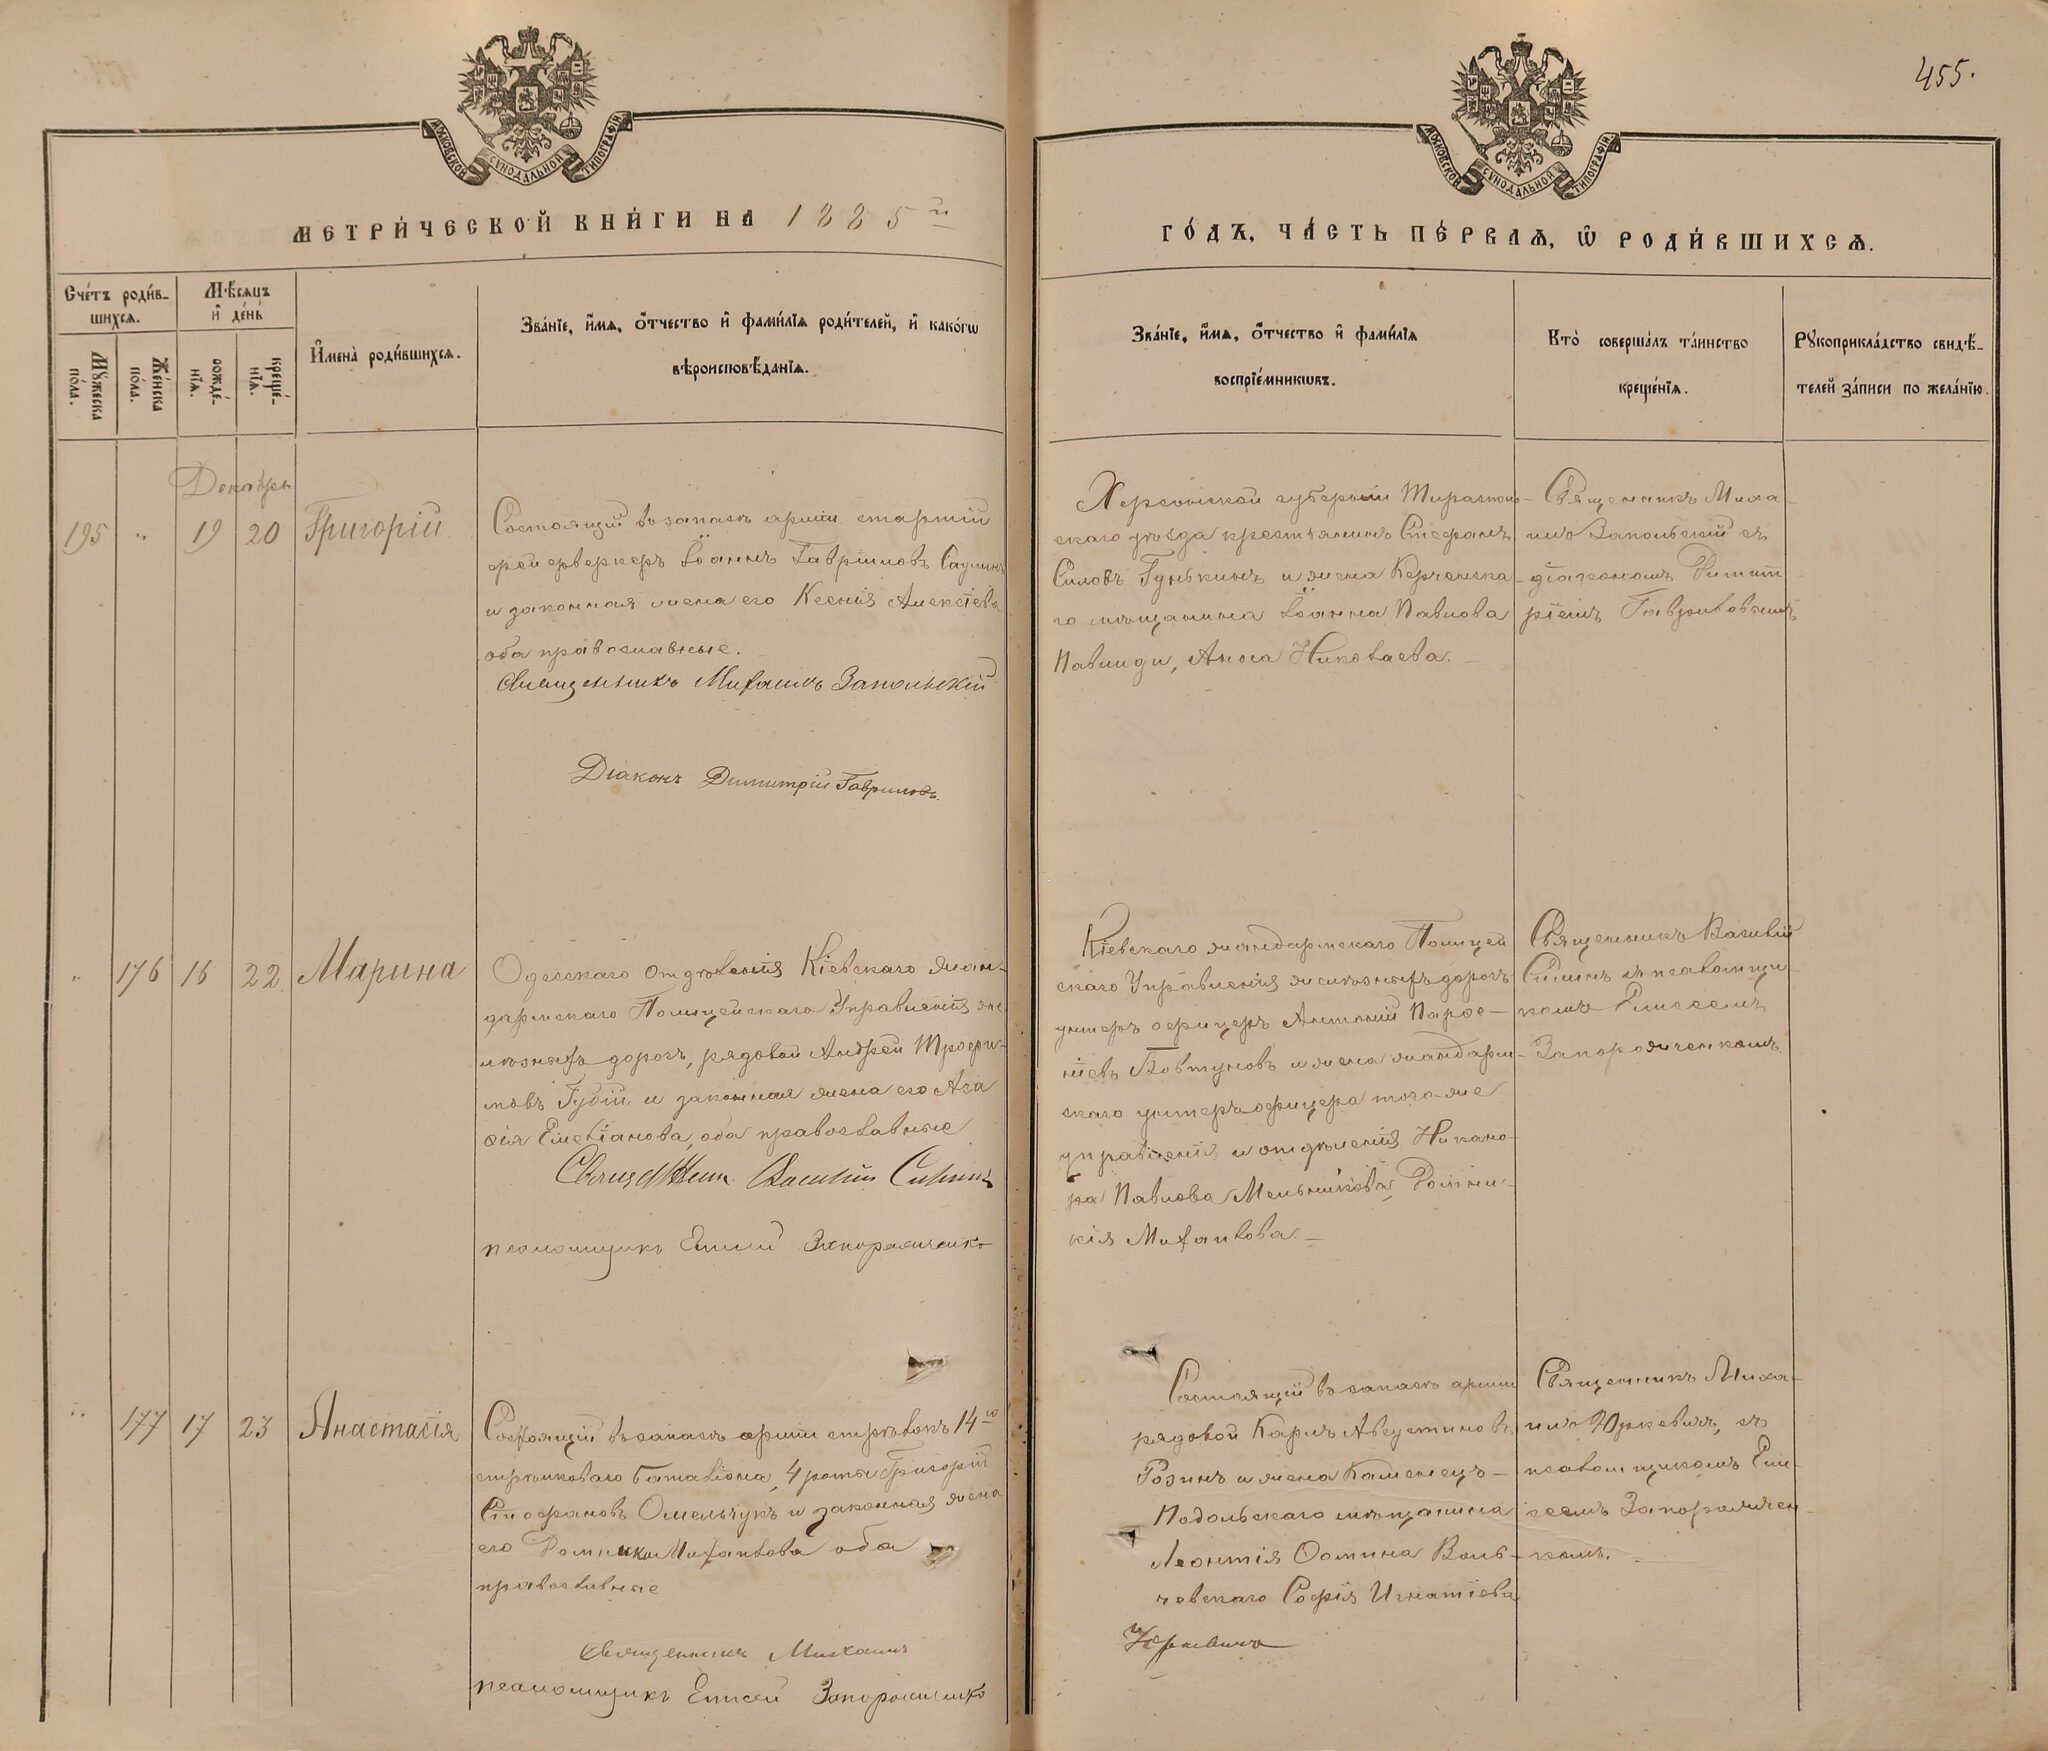 455.
МОСКОВСКОЙ СУНОДАЛЬНОЙ ТИПОГРАФІИ
МОСКОВСКОЙ СУНОДАЛЬНОЙ ТИПОГРАФІИ
МЕТРИ́ЧЕСКОЙ КНИ́ГИ НА 1885й
ГО́ДЪ, ЧА́СТЬ ПЕ́РВАѦ, Ѡ РОДИ́ВШИХСѦ.
Сче́тъ роди́в-
шихсѧ.
Мѣ́сѧцъ
и҆ де́нь
Мꙋ́жеска
по́ла.
Же́нска
по́ла.
рожде́-
нїѧ.
креще́-
нїѧ.
И҆мена̀ роди́вшихсѧ.
Зва́нїе, и҆́мѧ, ѻ҆́тчество и҆ фами́лїѧ роди́телей, и҆ како́гѡ
вѣроисповѣ́данїѧ.
Зва́нїе, и҆́мѧ, ѻ҆́тчество и҆ фами́лїѧ
воспрїе́мникѡвъ.
Кто̀ соверша́лъ та́инство
креще́нїѧ.
Рꙋкоприкла́дство свидѣ́-
телей за́писи по жела́нїю.
Декабрь
195 " 19 20 Григорій
Состоящій въ запасѣ арміи старшій
фейерверкеръ Іоаннъ Гавріиловъ
и законная жена его Ксенія Алексіева
оба православные.
Священникъ Михаилъ Запольскій
Діаконъ Димитрій Гавриловъ
Херсонской губерніи Тирасполь-
скаго уѣзда крестьянинъ Стефанъ
Силовъ Гунькинъ и жена Керченска-
го мѣщанина Іоанна Павлова
Павлиди, Анна Николаева.
Священникъ Миха-
илъ Запольскій съ
діакономъ Димит-
ріемъ
" 176 16 22 Марина
Одесскаго отдѣленія Кіевскаго жан-
дармскаго Полицейскаго Управленія же-
лѣзныхъ дорогъ, рядовой Андрей Трофи-
мовъ Губій и законная жена его Ага
фія Емеліанова, оба православные
Священникъ Василій
псаломщикъ Елисей Запорожченко
Кіевскаго жандармскаго Полицей
скаго Управленія желѣзныхъ дорогъ
унтеръ офицеръ Антоній Парфе-
ніевъ Бовтуновъ и жена жандарм-
скаго унтеръ-офицера того-же
управленія и отдѣленія Никано-
ра Павлова Мельникова Домни-
кія Михаилова.
Священникъ Василій
съ псаломщи-
комъ Елисеемъ
Запорожченкомъ
" 177 17 23 Анастасія
Состоящій въ запасѣ арміи стрѣлокъ 14го
стрѣлковаго баталіона, 4 роты Григорій
Стефановъ Омельчукъ и законная жена
его Домника Михаилова оба
православные
Священникъ Михаилъ
псаломщикъ Елисей Запорожченко
Состоящій въ запасѣ арміи
рядовой Карлъ Августиновъ
Розинъ и жена Каменецъ-
Подольскаго мѣщанина
Леонтія Фомина Воль-
чевскаго Софія Игнатіева
Юркевичъ
Священникъ Миха-
илъ Юркевичъ, съ
псаломщикомъ Ели-
сеемъ Запорожчен-
комъ.